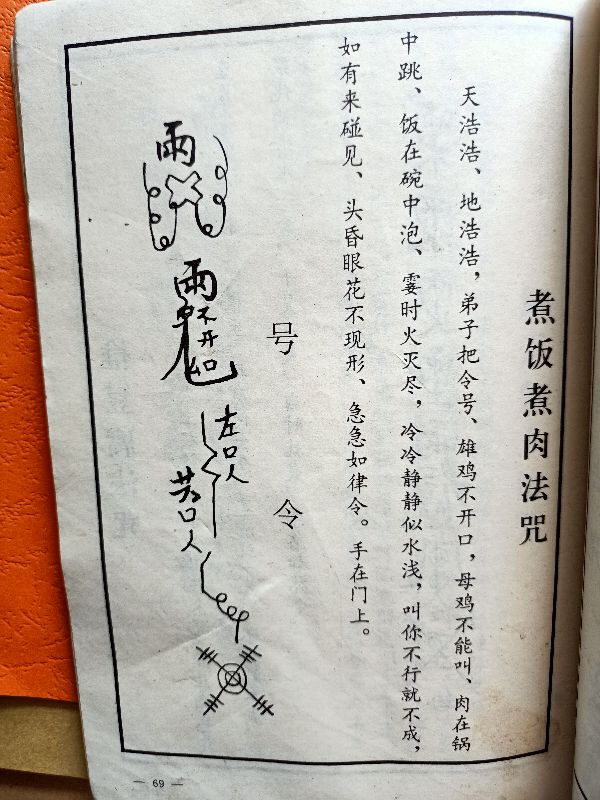 煮饭煮肉法咒
天浩浩、地浩浩，弟子把令号、雄鸡不开口，母鸡不能叫、肉在锅
中跳、饭在碗中泡、霎时火灭尽，冷冷静静似水浅，叫你不行就不成，
如有来碰见、头昏眼花不现形、急急如律令。手在门上。
号令
雨
雨
不开口
左口人
口人
— 69 —